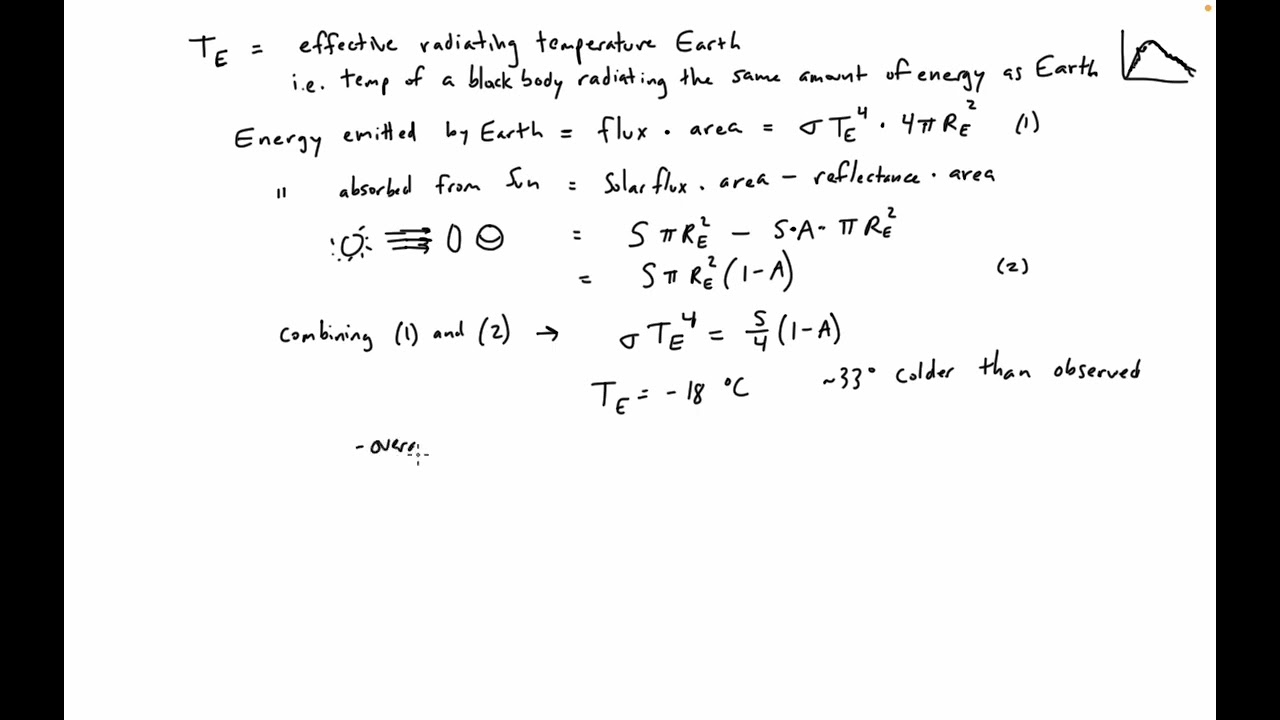 T_E = effective radiating temperature Earth
i.e. temp of a black body radiating the same amount of energy as Earth
Energy emitted by Earth = flux · area = σ T_E^4 · 4π R_E^2 (1)
" absorbed from Sun = Solar flux · area − reflectance · area
= S π R_E^2 − S·A· π R_E^2
= S π R_E^2 (1−A) (2)
Combining (1) and (2) → σ T_E^4 = S/4 (1−A)
T_E = −18 °C ~33° colder than observed
- overa